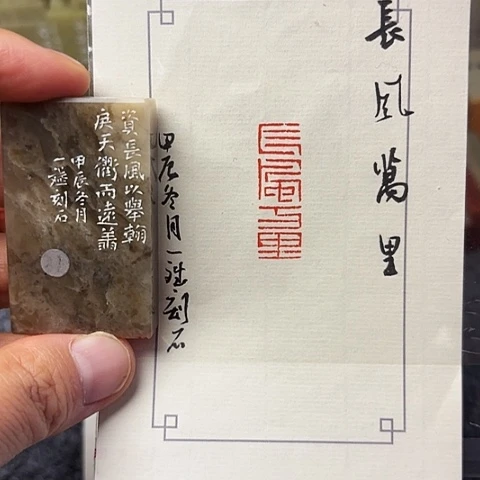 長風萬里
長風萬里
甲辰冬月一刻石
資長風以舉翰
戾天衢而遠翥
甲辰冬月
一刻石